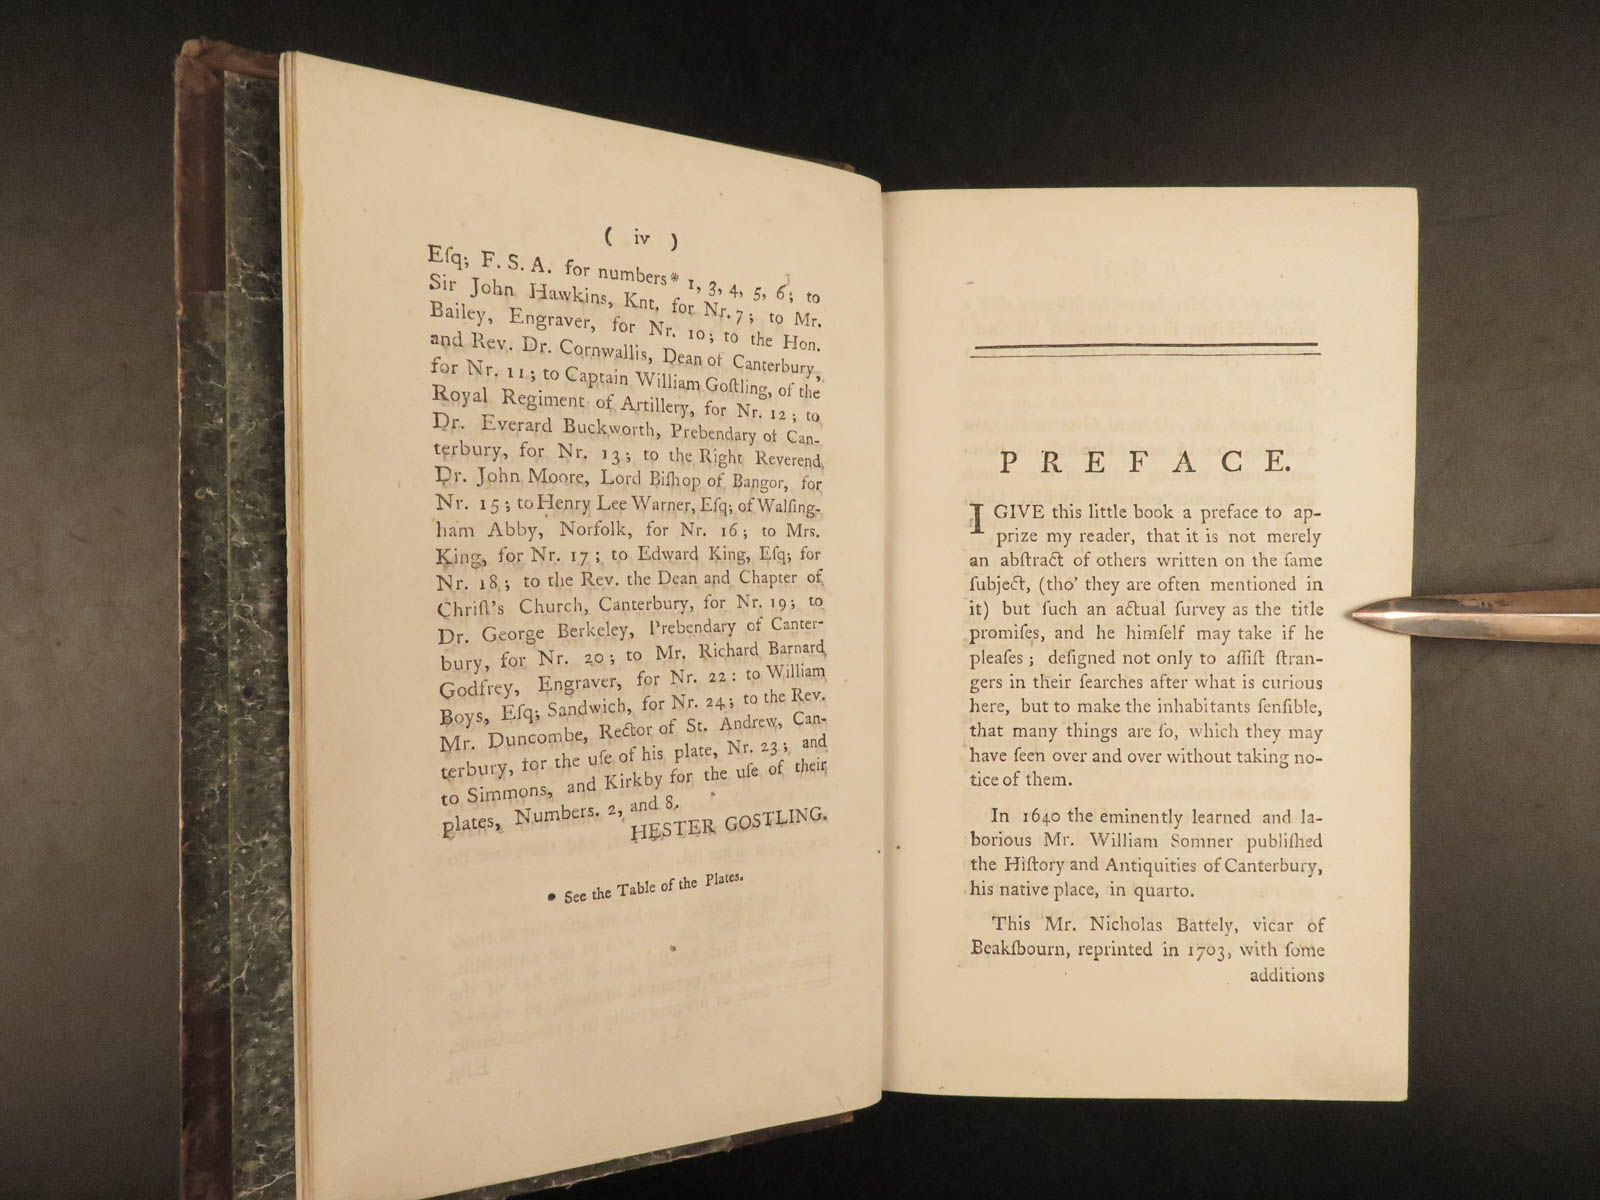 ( iv )
Eſq; F. S. A. for numbers* 1, 3, 4, 5, 6; to
Sir John Hawkins, Knt. for Nr. 7; to Mr.
Bailey, Engraver, for Nr. 10; to the Hon.
and Rev. Dr. Cornwallis, Dean of Canterbury,
for Nr. 11; to Captain William Goſtling, of the
Royal Regiment of Artillery, for Nr. 12; to
Dr. Everard Buckworth, Prebendary of Can-
terbury, for Nr. 13; to the Right Reverend
Dr. John Moore, Lord Biſhop of Bangor, for
Nr. 15; to Henry Lee Warner, Eſq; of Walſing-
ham Abby, Norfolk, for Nr. 16; to Mrs.
King, for Nr. 17; to Edward King, Eſq; for
Nr. 18; to the Rev. the Dean and Chapter of
Chriſt's Church, Canterbury, for Nr. 19; to
Dr. George Berkeley, Prebendary of Canter-
bury, for Nr. 20; to Mr. Richard Barnard
Godfrey, Engraver, for Nr. 22: to William
Boys, Eſq; Sandwich, for Nr. 24; to the Rev.
Mr. Duncombe, Rector of St. Andrew, Can-
terbury, for the uſe of his plate, Nr. 23; and
to Simmons, and Kirkby for the uſe of their
plates, Numbers. 2, and 8.
HESTER GOSTLING.
* See the Table of the Plates.
PREFACE.
I GIVE this little book a preface to ap-
prize my reader, that it is not merely
an abſtract of others written on the ſame
ſubject, (tho' they are often mentioned in
it) but ſuch an actual ſurvey as the title
promiſes, and he himſelf may take if he
pleaſes; deſigned not only to aſſiſt ſtran-
gers in their ſearches after what is curious
here, but to make the inhabitants ſenſible,
that many things are ſo, which they may
have ſeen over and over without taking no-
tice of them.
In 1640 the eminently learned and la-
borious Mr. William Somner publiſhed
the Hiſtory and Antiquities of Canterbury,
his native place, in quarto.
This Mr. Nicholas Battely, vicar of
Beakſbourn, reprinted in 1703, with ſome
additions